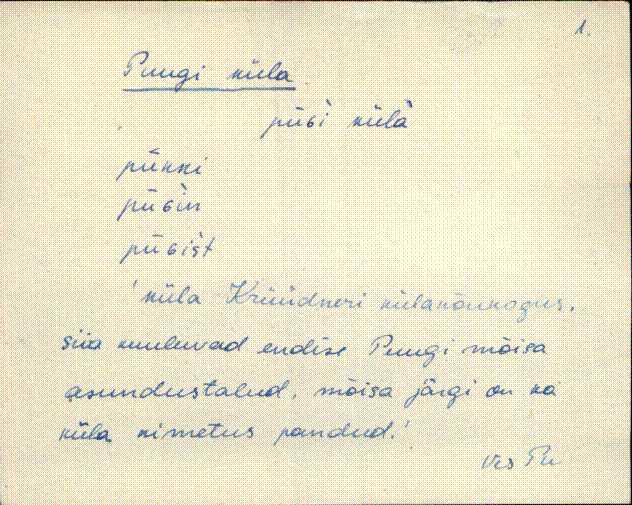 1.
Puugi küla
püɢi külä
pükki
püɢin
püɢist
'küla Krüüdneri külanõukogus,
siia kuuluvad endise Puugi mõisa
asundustalud, mõisa järgi on ka
küla nimetus pandud.'